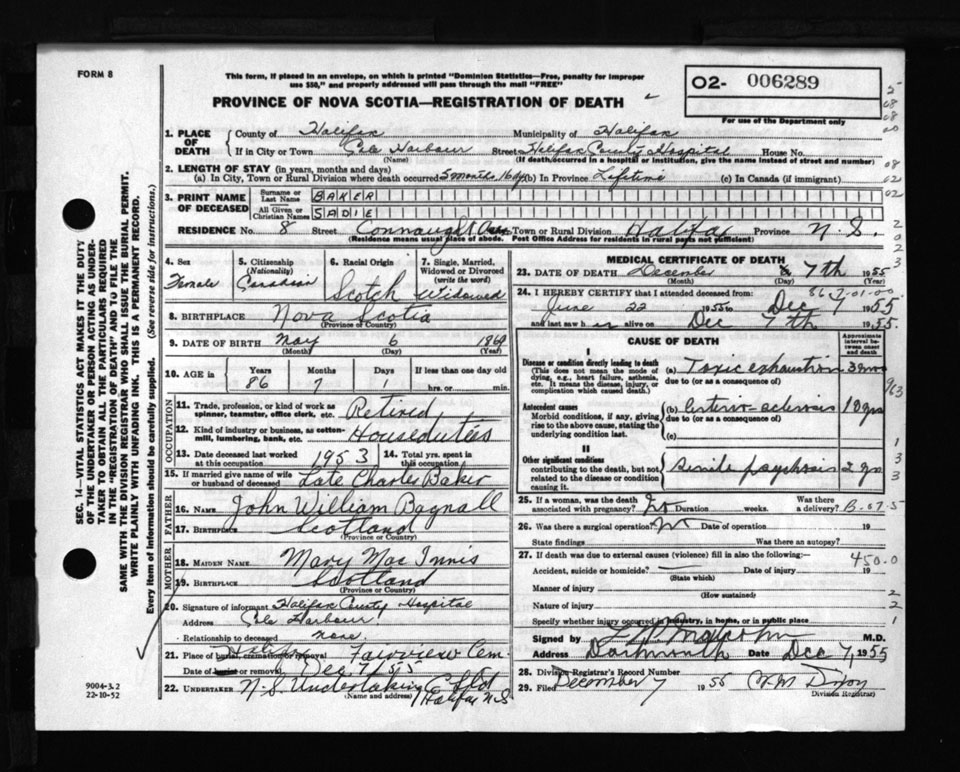 FORM 8
This form, if placed in an envelope, on which is printed "Dominion Statistics—Free, penalty for improper
use $50," and properly addressed will pass through the mail "FREE"
PROVINCE OF NOVA SCOTIA—REGISTRATION OF DEATH
O2- 006289
For use of the Department only
1. PLACE OF DEATH
County of Halifax Municipality of Halifax
If in City or Town Cole Harbour Street Halifax County Hospital House No.
(Name) (If death occurred in a hospital or institution, give the name instead of street and number)
2. LENGTH OF STAY (in years, months and days)
(a) In City, Town or Rural Division where death occurred 5 months 16 dy (b) In Province Lifetime (c) In Canada (if immigrant)
3. PRINT NAME OF DECEASED
Surname or Last Name BAKER
All Given or Christian Names SADIE
RESIDENCE No. 8 Street Connaught Ave Town or Rural Division Halifax Province N.S.
(Residence means usual place of abode. Post Office Address for residents in rural parts not sufficient)
4. Sex Female
5. Citizenship (Nationality) Canadian
6. Racial Origin Scotch
7. Single, Married, Widowed or Divorced (write the word) Widowed
8. BIRTHPLACE Nova Scotia
(Province or Country)
9. DATE OF BIRTH May 6 1869
(Month) (Day) (Year)
10. AGE in Years 86 Months 7 Days 1 If less than one day
hrs. or min.
OCCUPATION
11. Trade, profession, or kind of work as spinner, teamster, office clerk, etc. Retired
12. Kind of industry or business, as cotton-mill, lumbering, bank, etc. Houseduties
13. Date deceased last worked at this occupation 1953 14. Total yrs. spent in this occupation
15. If married give name of wife or husband of deceased Late Charles Baker
FATHER
16. NAME John William Bagnall
17. BIRTHPLACE Scotland
(Province or Country)
MOTHER
18. MAIDEN NAME Mary Mac Innis
19. BIRTHPLACE Scotland
(Province or Country)
20. Signature of informant Halifax County Hospital
Address Cole Harbour
Relationship to deceased none.
21. Place of burial, cremation or removal Halifax Fairview Cem
Date of burial or removal Dec 7/55
22. UNDERTAKER N.S. Undertaking Co Ltd
(Name and address) Halifax N.S
MEDICAL CERTIFICATE OF DEATH
23. DATE OF DEATH December 7th 1955
(Month) (Day) (Year)
86-7-01-00
24. I HEREBY CERTIFY that I attended deceased from
June 22 1955 to Dec 7 1955
and last saw h er alive on Dec 7th 1955.
CAUSE OF DEATH
Approximate interval between onset and death
I
Disease or condition directly leading to death
(This does not mean the mode of dying, e.g., heart failure, asthenia, etc. It means the disease, injury, or complication which caused death.)
(a) Toxic exhaustion 3 mos
due to (or as a consequence of)
Antecedent causes
Morbid conditions, if any, giving rise to the above cause, stating the underlying condition last.
(b) Arterio-sclerosis 10 yrs
due to (or as a consequence of)
(c)
II
Other significant conditions
contributing to the death, but not related to the disease or condition causing it.
Senile psychosis 2 yrs
25. If a woman, was the death associated with pregnancy? No Duration weeks. Was there a delivery? B-07-5
26. Was there a surgical operation? No Date of operation 19
State findings Was there an autopsy?
27. If death was due to external causes (violence) fill in also the following:—
450.0
Accident, suicide or homicide? Date of injury 19
(State which)
Manner of injury
(How sustained)
Nature of injury
Specify whether injury occurred in industry, in home, or in public place
Signed by M.D.
Address Dartmouth Date Dec 7, 1955
28. Division Registrar's Record Number
29. Filed December 7 1955
Division Registrar
SEC. 14—VITAL STATISTICS ACT MAKES IT THE DUTY
OF THE UNDERTAKER OR PERSON ACTING AS UNDER-
TAKER TO OBTAIN ALL THE PARTICULARS REQUIRED
IN THE "REGISTRATION OF DEATH" AND TO FILE THE
SAME WITH THE DIVISION REGISTRAR WHO SHALL ISSUE THE BURIAL PERMIT.
WRITE PLAINLY WITH UNFADING INK. THIS IS A PERMANENT RECORD.
Every item of information should be carefully supplied. (See reverse side for instructions.)
9004-3.2
22-10-52